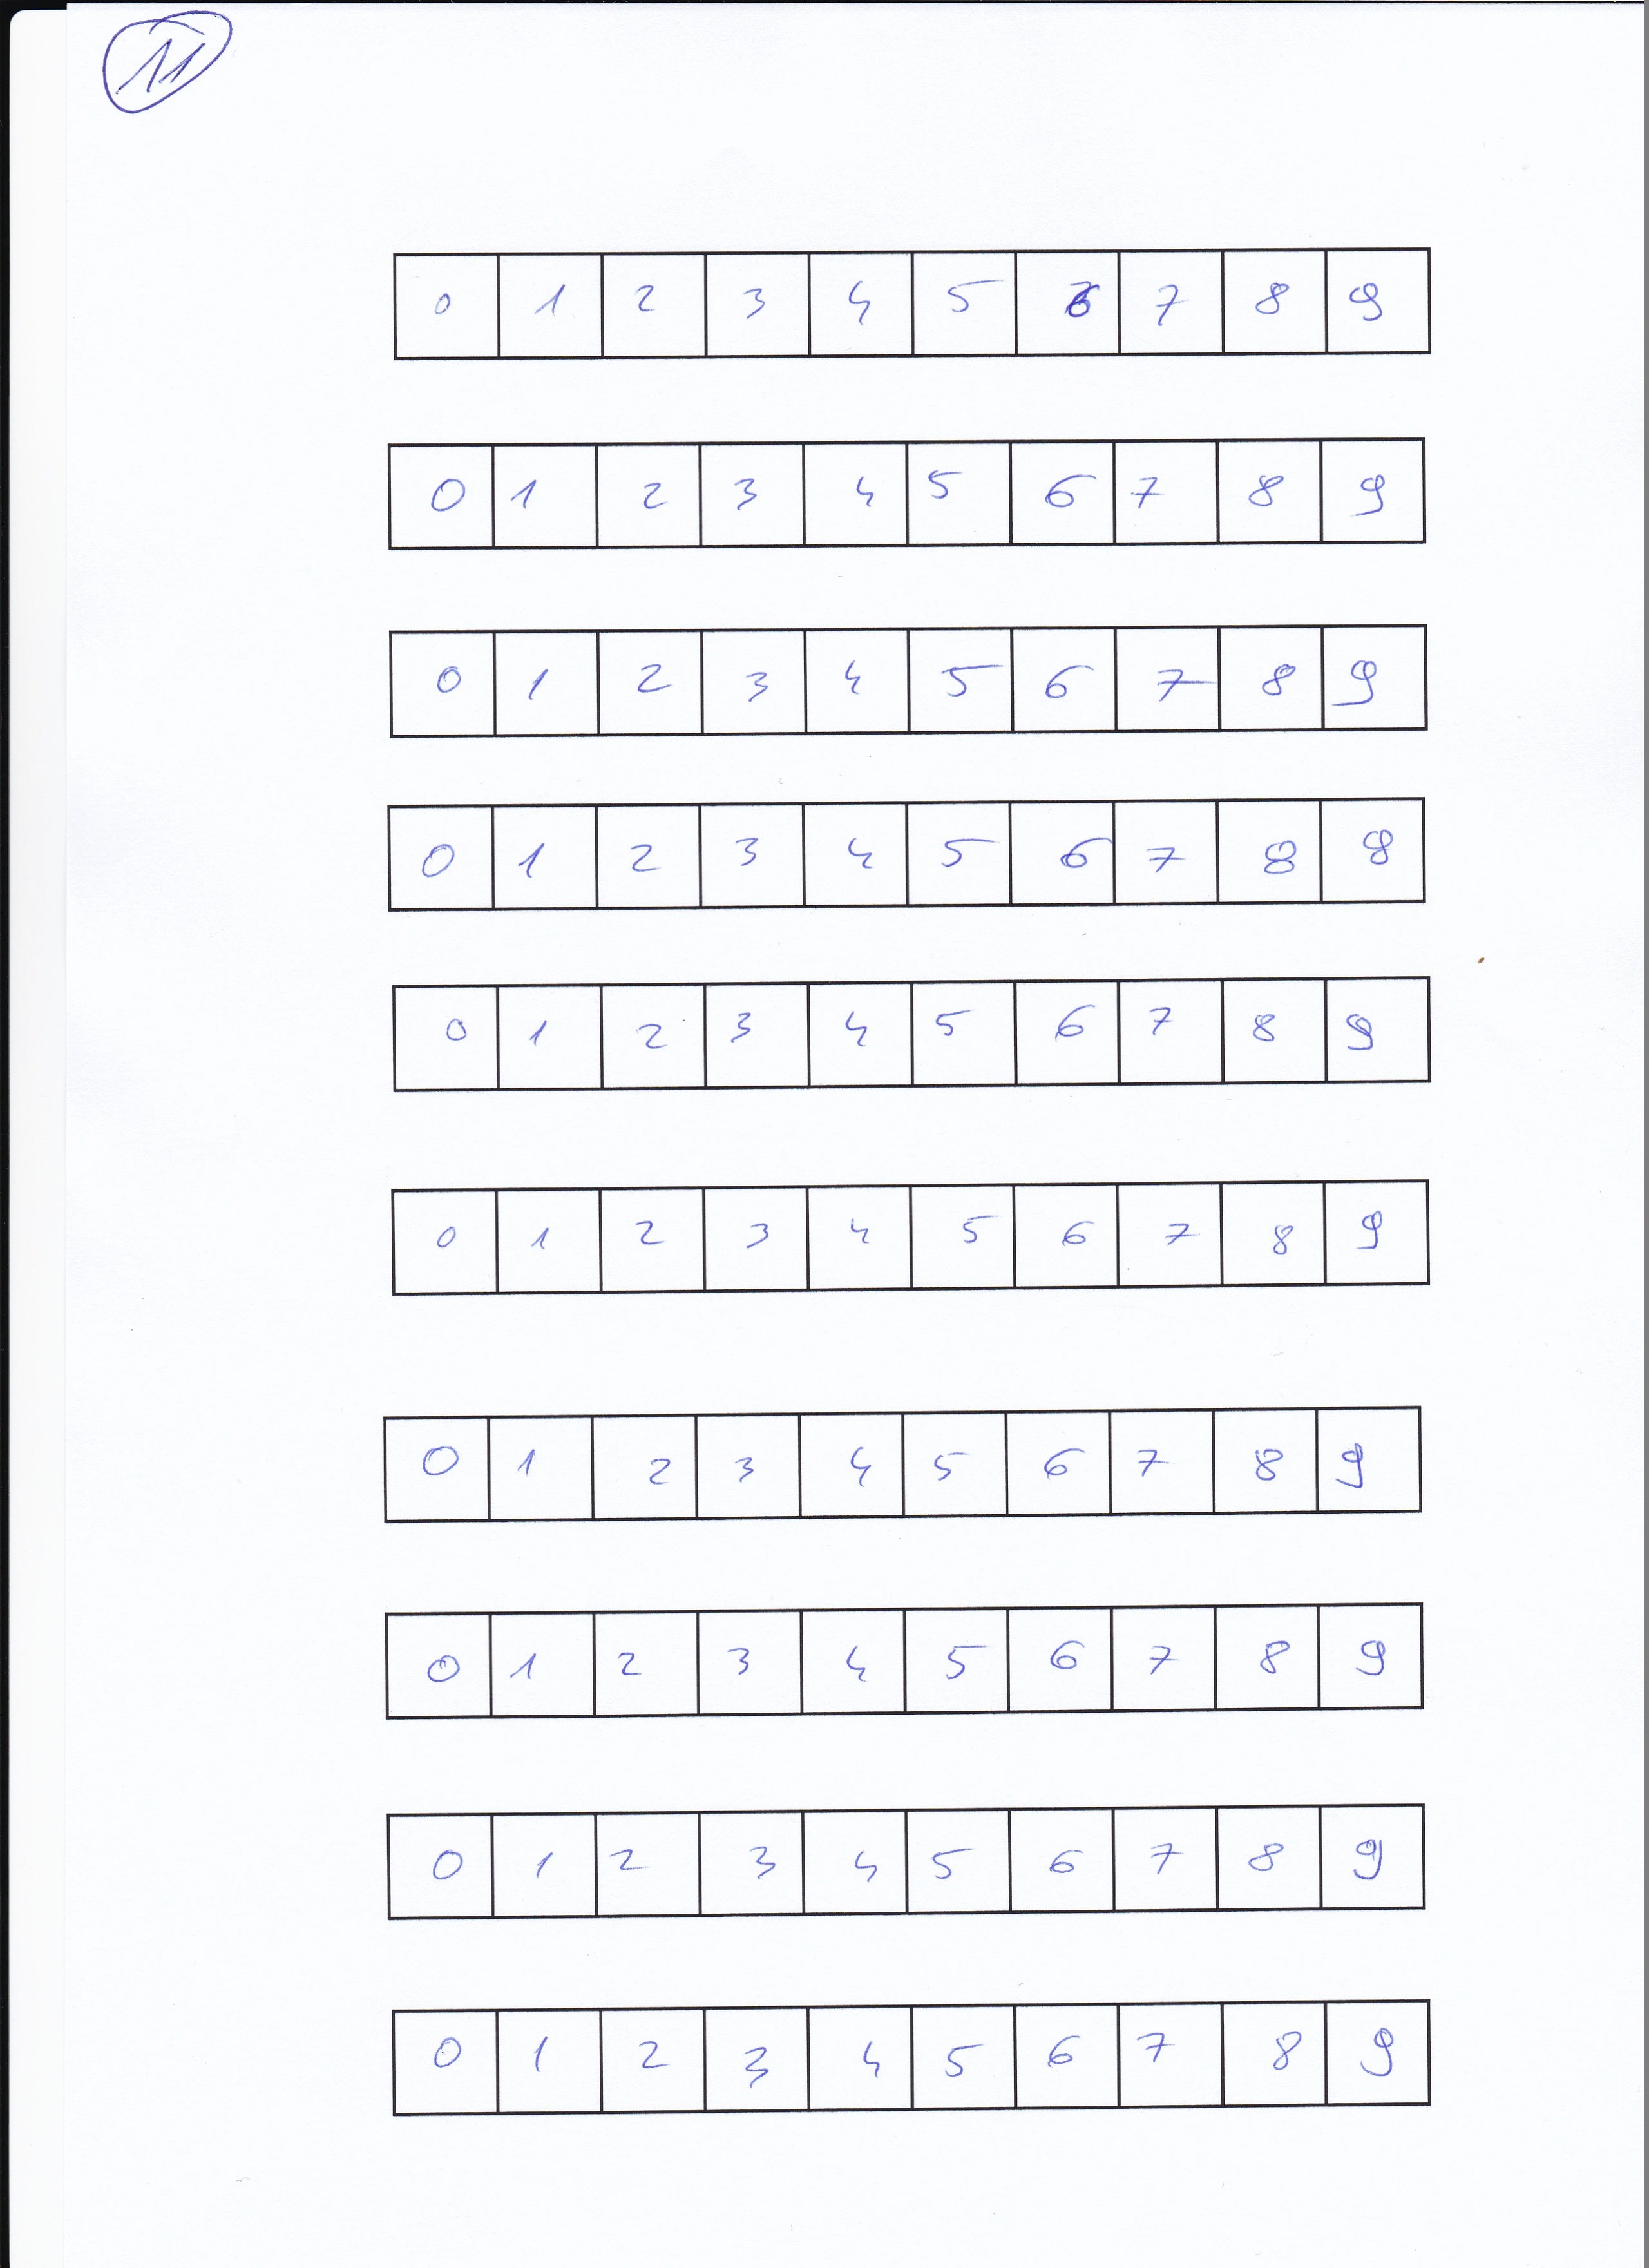 11
0 1 2 3 4 5 6 7 8 9
0 1 2 3 4 5 6 7 8 9
0 1 2 3 4 5 6 7 8 9
0 1 2 3 4 5 6 7 8 8
0 1 2 3 4 5 6 7 8 9
0 1 2 3 4 5 6 7 8 9
0 1 2 3 4 5 6 7 8 9
0 1 2 3 4 5 6 7 8 9
0 1 2 3 4 5 6 7 8 9
0 1 2 3 4 5 6 7 8 9